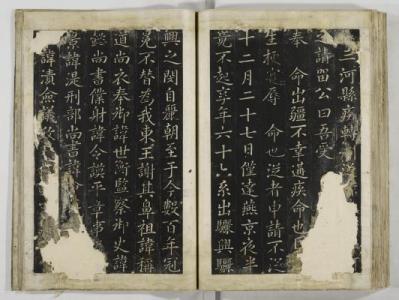 三河縣病轉
之請留公曰吾受
奉 命出疆不幸遘疾命也
生還辱 命也從者申請不從
十二月二十七日僅達燕京夜半
竟不起享年六十六系出驪興驪
興之閔自麗朝至于今數百年冠
冕不替為我東王謝其鼻祖諱稱
道尚衣奉御諱世衡監察御史諱
尚書僕射諱令謨平章事
景諱湜刑部尚書諱
諱漬僉議政